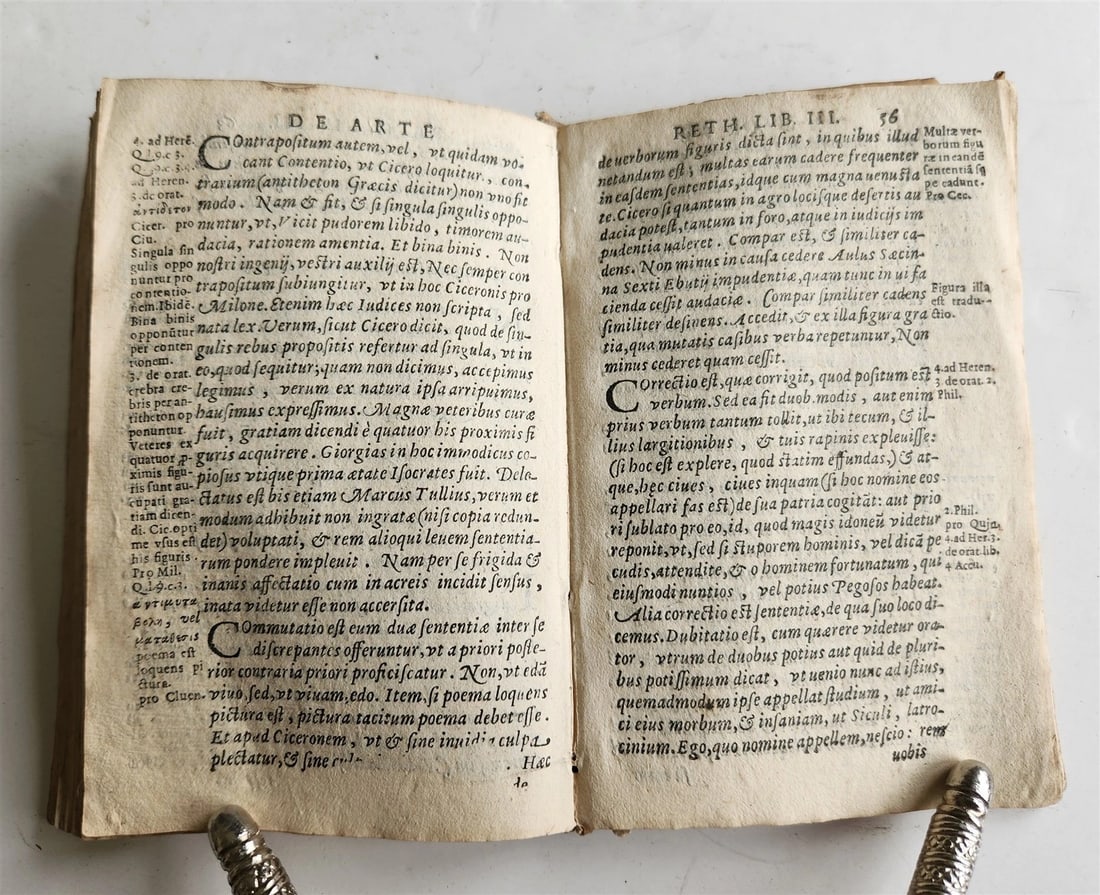 DE ARTE
4. ad Herē.
Q l.9.c 3.
ad Heren.
3. de orat.
Cicer. pro
Ciu.
Singula sin
gulis oppo
nuntur pro
contentio-
nem. Ibidē.
Bina binis
opponūtur
per conten
tionem.
3. de orat.
crebra cre-
bris per an-
titheton op
ponuntur.
Veteres ex
quatuor ꝓ-
ximis figu-
ris sunt au-
cupati gra-
tiam dicen-
di. Cic. opti
me vsus est
his figuris.
Pro Mil.
Q.l.9.c.3.
vel
poema est
loquens pi
ctura.
pro Cluen.
COntrapositum autem, vel, vt quidam vo-
cant Contentio, vt Cicero loquitur, con-
trarium (antitheton Græcis dicitur) non vno fit
modo. Nam & fit, & si singula singulis oppo-
nuntur, vt, Vicit pudorem libido, timorem au-
dacia, rationem amentia. Et bina binis. Non
nostri ingenij, vestri auxilij est, Nec semper con
trapositum subiungitur, vt in hoc Ciceronis pro
Milone. Etenim hæc Iudices non scripta, sed
nata lex. Verum, sicut Cicero dicit, quod de sin-
gulis rebus propositis refertur ad singula, vt in
eo, quod sequitur; quam non dicimus, accepimus
legimus, verum ex natura ipsa arripuimus,
hausimus expressimus. Magnæ veteribus curæ
fuit, gratiam dicendi è quatuor his proximis fi
guris acquirere. Giorgias in hoc immodicus co-
piosus vtique prima ætate Isocrates fuit. Dele-
ctatus est his etiam Marcus Tullius, verum et
modum adhibuit non ingratæ (nisi copia redun-
det) voluptati, & rem alioqui leuem sententia-
rum pondere impleuit. Nam per se frigida &
inanis affectatio cum in acreis incidit sensus,
inata videtur esse non accersita.
COmmutatio est eum duæ sententiæ inter se
discrepantes offeruntur, vt a priori poste-
rior contraria priori proficiscatur. Non, vt edā
viuo, sed, vt viuam, edo. Item, si poema loquens
pictura est, pictura tacitum poema debet esse.
Et apud Ciceronem, vt & sine inuidia culpa
plectatur, & sine
Hæc
de
RETH. LIB. III. 56
de uerborum figuris dicta sint, in quibus illud
netandum est; multas earum cadere frequenter
in easdem sententias, idque cum magna uenusta
te. Cicero si quantum in agro locisque desertis au
dacia potest, tantum in foro, atque in iudicijs im
pudentia ualeret. Compar est, & similiter ca-
dens. Non minus in causa cedere Aulus Sæcin-
na Sexti Ebutij impudentiæ, quam tunc in ui fa
cienda cessit audaciæ. Compar similiter cadens
similiter desinens. Accedit, & ex illa figura gra
tia, qua mutatis casibus verba repetuntur, Non
minus cederet quam cessit.
COrrectio est, quæ corrigit, quod positum est
verbum. Sed ea fit duob. modis, aut enim
prius verbum tantum tollit, ut ibi tecum, & il-
lius largitionibus, & tuis rapinis expleuisse:
(si hoc est explere, quod statim effundas,) & at-
que, hęc ciues, ciues inquam (si hoc nomine eos
appellari fas est) de sua patria cogitāt: aut prio
ri sublato pro eo, id, quod magis idoneū videtur
reponit, vt, sed si stuporem hominis, vel dicā pe
cudis, attendite, & o hominem fortunatum, qui
eiusmodi nuntios, vel potius Pegosos habeat.
Alia correctio est sententiæ, de qua suo loco di-
cemus. Dubitatio est, cum quærere videtur ora-
tor, vtrum de duobus potius aut quid de pluri-
bus potissimum dicat, vt uenio nunc ad istius,
quemadmodum ipse appellat studium, ut ami-
ci eius morbum, & insaniam, ut Siculi, latro-
cinium. Ego, quo nomine appellem, nescio: rem
uobis
Multæ ver-
borum figu
ræ in eandē
sententiā sę
pe cadunt.
Pro Cec.
Figura illa
est tradu-
ctio.
4.ad Heren.
3 de orat. 2.
Phil.
2. Phil.
pro Quin.
4.ad Her.3.
de orat.lib.
4 Accu.